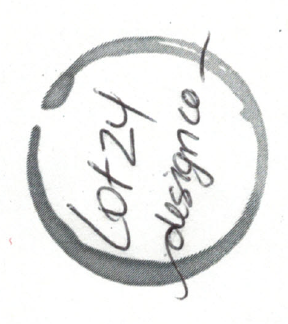 Lot24
design co